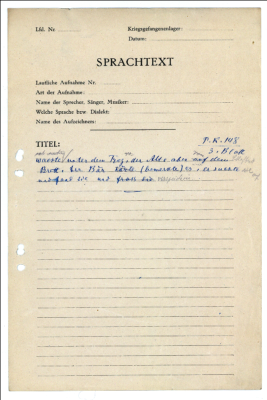 Lfd. Nr.
Kriegsgefangenenlager:
Datum:
SPRACHTEXT
Lautliche Aufnahme Nr.
Art der Aufnahme:
Name der Sprecher, Sänger, Musiker:
Welche Sprache bzw. Dialekt:
Name des Aufzeichners:
TITEL:
P. K. 148
3. Blatt
unter dem Trog, der Alte aber auf dem
Brod. Der Bär hörte (bemerkte) es, er suchte
und fand sie und fraß sie